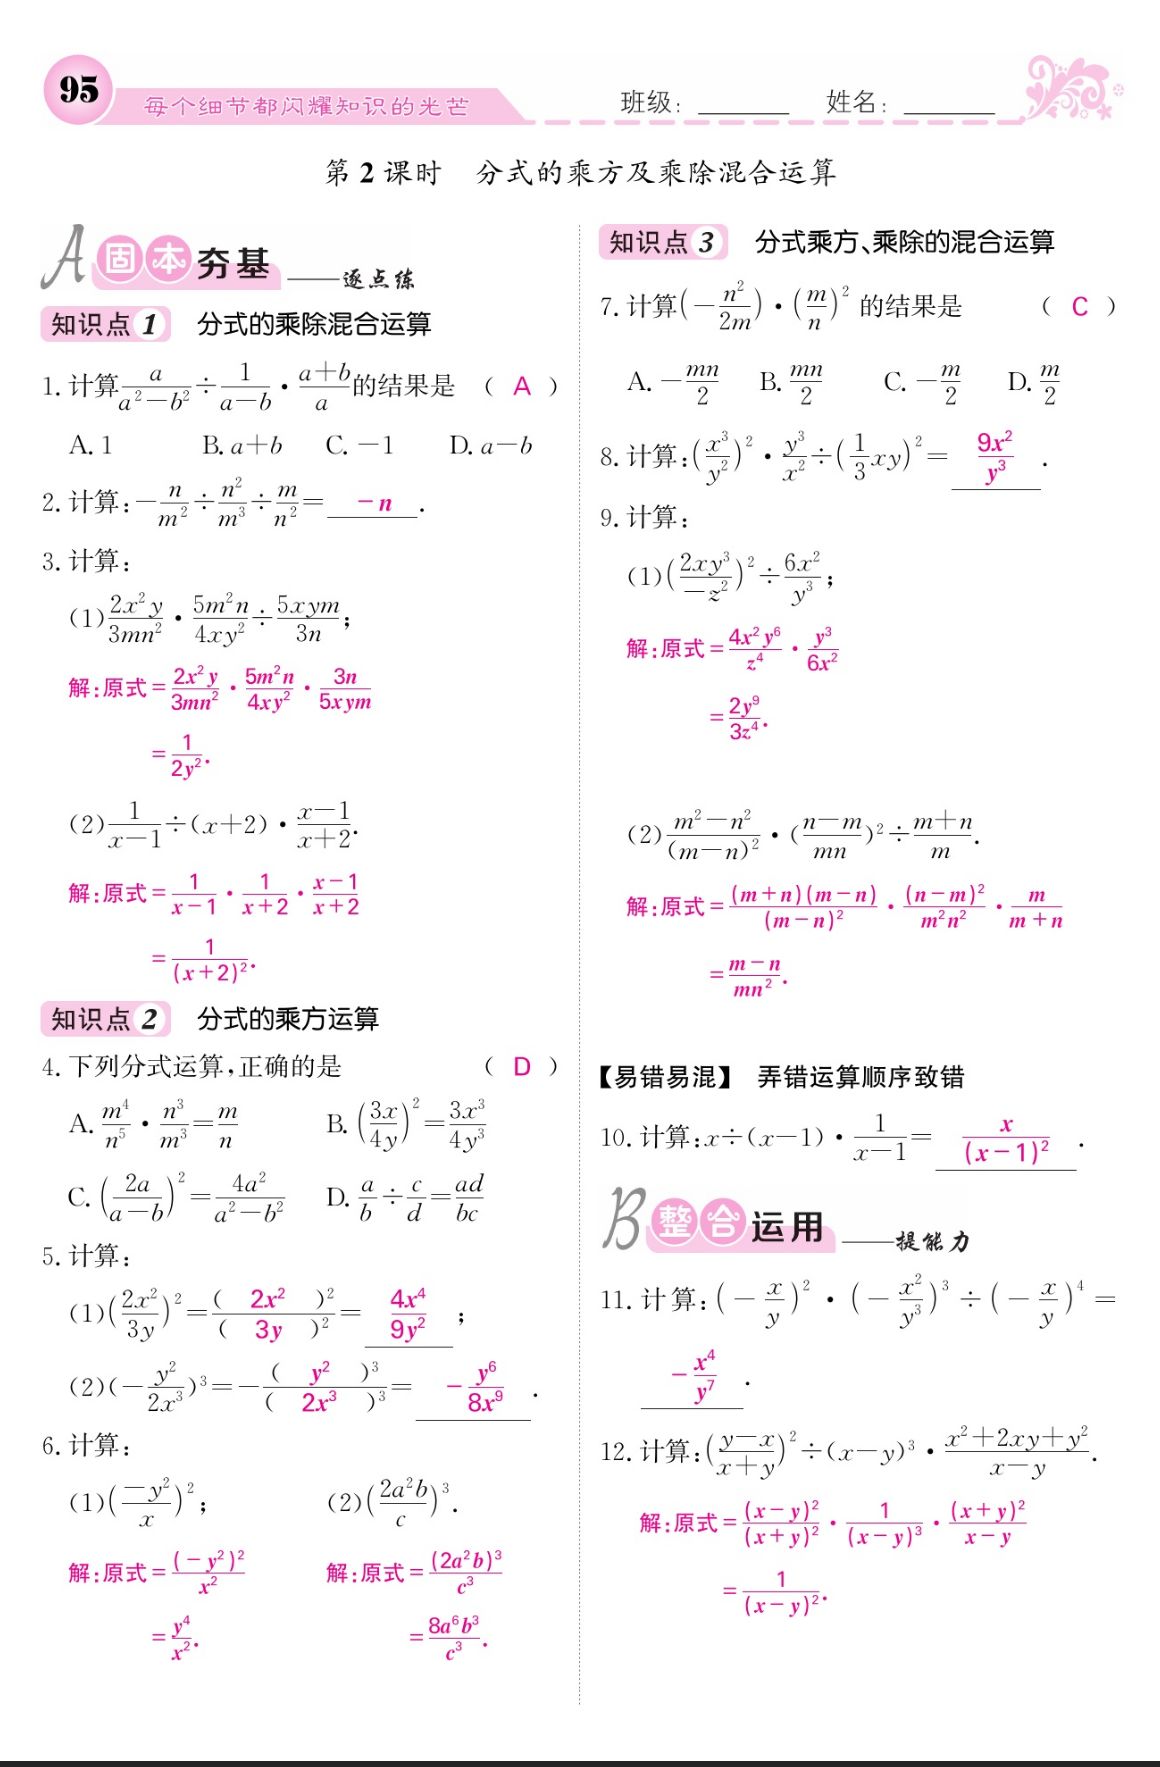 95
每个细节都闪耀知识的光芒
班级：______ 姓名：______
第 2 课时 分式的乘方及乘除混合运算
A 固本夯基 ——逐点练
知识点 1 分式的乘除混合运算
1. 计算 a/(a²－b²) ÷ 1/(a－b) · (a＋b)/a 的结果是 （ A ）
A. 1 B. a＋b C. －1 D. a－b
2. 计算：－n/m² ÷ n²/m³ ÷ m/n² ＝ －n .
3. 计算：
(1) 2x²y/3mn² · 5m²n/4xy² ÷ 5xym/3n；
解：原式＝2x²y/3mn² · 5m²n/4xy² · 3n/5xym
＝1/2y².
(2) 1/(x－1) ÷ (x＋2) · (x－1)/(x＋2).
解：原式＝1/(x－1) · 1/(x＋2) · (x－1)/(x＋2)
＝1/(x＋2)².
知识点 2 分式的乘方运算
4. 下列分式运算，正确的是 （ D ）
A. m⁴/n⁵ · n³/m³＝m/n B. (3x/4y)²＝3x³/4y³
C. (2a/(a－b))²＝4a²/(a²－b²) D. a/b ÷ c/d＝ad/bc
5. 计算：
(1) (2x²/3y)²＝( 2x² )²/( 3y )²＝ 4x⁴/9y² ；
(2) (－y²/2x³)³＝－( y² )³/( 2x³ )³＝ －y⁶/8x⁹ .
6. 计算：
(1) (－y²/x)²； (2) (2a²b/c)³.
解：原式＝(－y²)²/x² 解：原式＝(2a²b)³/c³
＝y⁴/x². ＝8a⁶b³/c³.
知识点 3 分式乘方、乘除的混合运算
7. 计算(－n²/2m) · (m/n)² 的结果是 （ C ）
A. －mn/2 B. mn/2 C. －m/2 D. m/2
8. 计算：(x³/y²)² · y³/x² ÷ (1/3 xy)²＝ 9x²/y³ .
9. 计算：
(1) (2xy³/－z²)² ÷ 6x²/y³；
解：原式＝4x²y⁶/z⁴ · y³/6x²
＝2y⁹/3z⁴.
(2) (m²－n²)/(m－n)² · ((n－m)/mn)² ÷ (m＋n)/m.
解：原式＝(m＋n)(m－n)/(m－n)² · (n－m)²/m²n² · m/(m＋n)
＝(m－n)/mn².
【易错易混】 弄错运算顺序致错
10. 计算：x÷(x－1) · 1/(x－1)＝ x/(x－1)² .
B 整合运用 ——提能力
11. 计算：(－x/y)² · (－x²/y³)³ ÷ (－x/y)⁴ ＝
－x⁴/y⁷ .
12. 计算：((y－x)/(x＋y))² ÷ (x－y)³ · (x²＋2xy＋y²)/(x－y).
解：原式＝(x－y)²/(x＋y)² · 1/(x－y)³ · (x＋y)²/(x－y)
＝1/(x－y)².